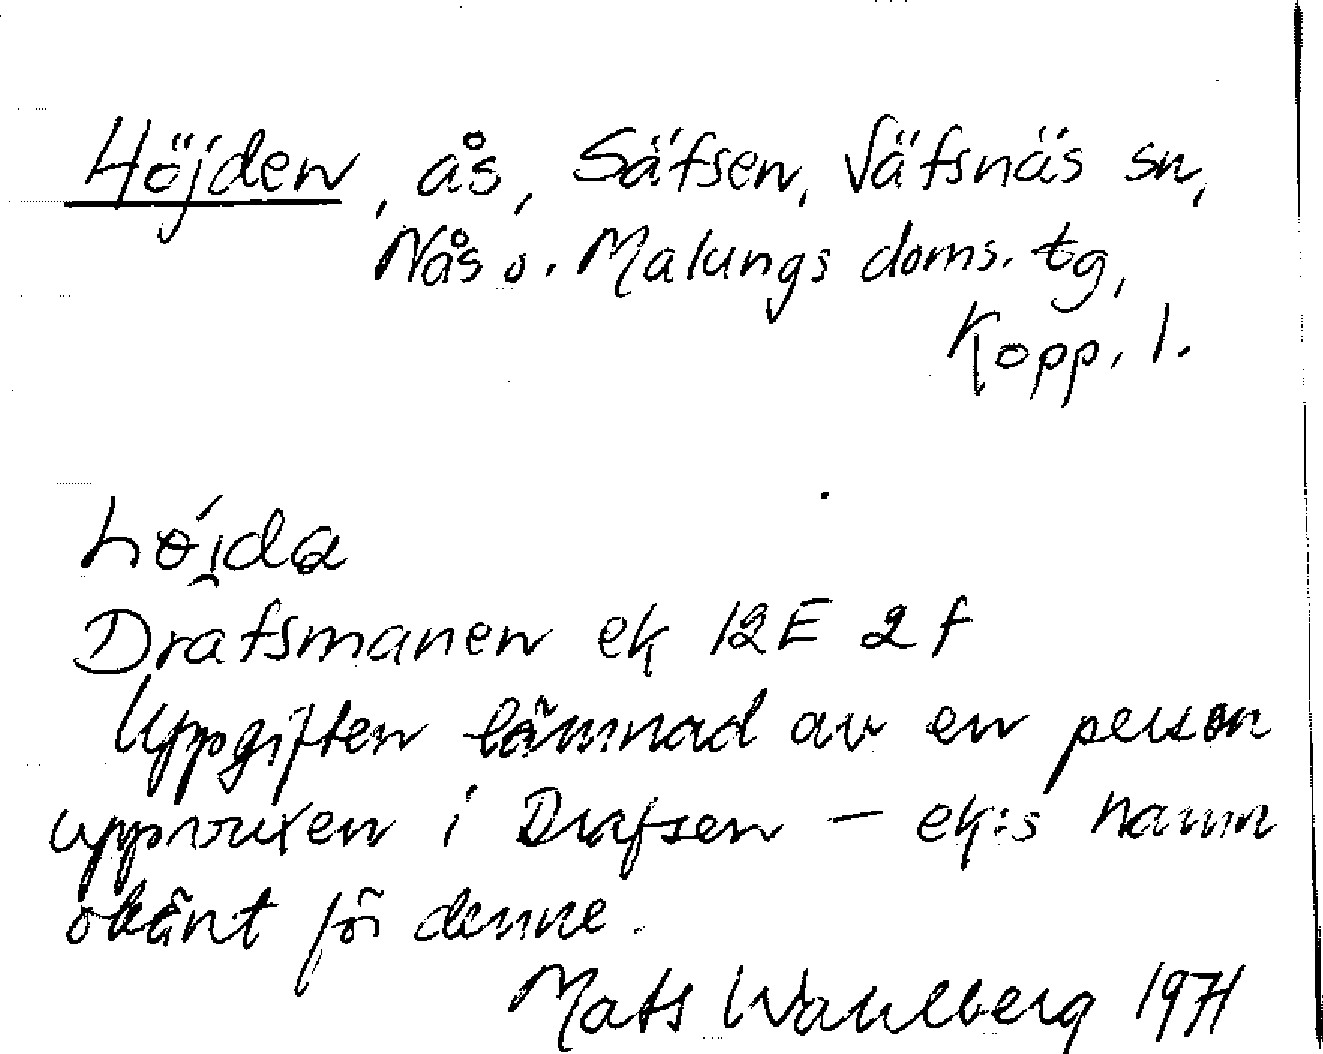 Höjden, ås, Säfsen, Säfsnäs sn,
Nås o. Malungs doms. tg,
Kopp. l.
höi̯da
Drafsmanen ek 12E 2f
Uppgiften lämnad av en person
uppvuxen i Drafsen – ek:s namn
okänt för denne.
Mats Wahlberg 1971